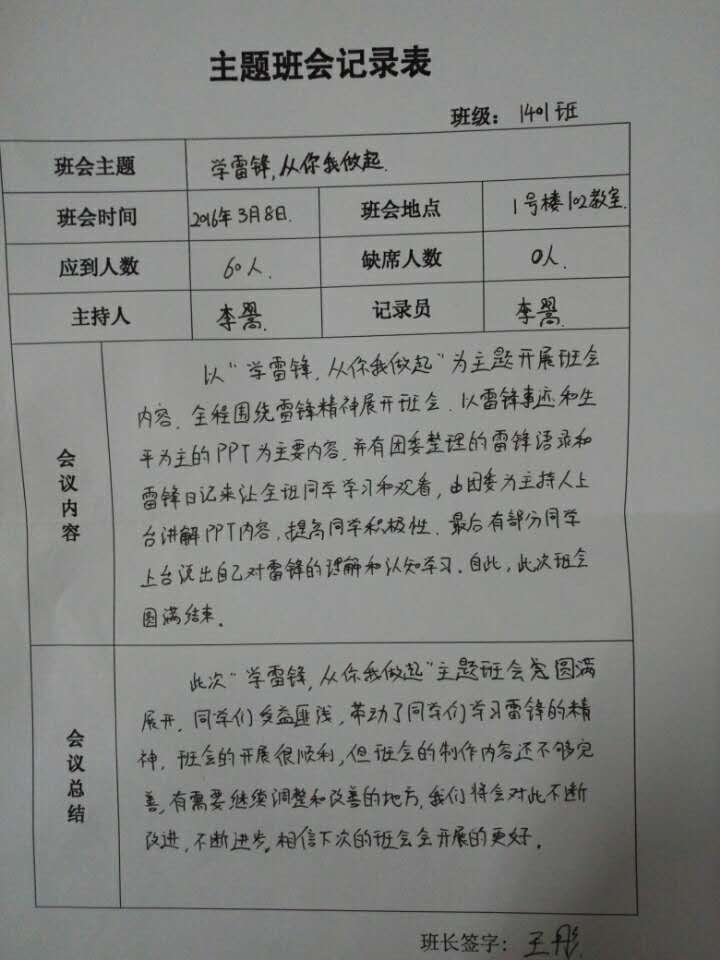 主题班会记录表
班级：1401班
班会主题 学雷锋,从你我做起.
班会时间 2016年3月8日. 班会地点 1号楼102教室.
应到人数 60人. 缺席人数 0人.
主持人 李翯. 记录员 李翯.
会议内容
以“学雷锋,从你我做起”为主题开展班会
内容.全程围绕雷锋精神展开班会.以雷锋事迹和生
平为主的PPT为主要内容.并有团委整理的雷锋语录和
雷锋日记来让全班同学学习和观看,由团委为主持人上
台讲解PPT内容,提高同学积极性.最后有部分同学
上台说出自己对雷锋的理解和认知学习.自此,此次班会
圆满结束.
会议总结
此次“学雷锋,从你我做起”主题班会圆满
展开.同学们受益匪浅,带动了同学们学习雷锋的精
神.班会的开展很顺利,但班会的制作内容还不够完
善,有需要继续调整和改善的地方,我们将会对此不断
改进,不断进步.相信下次的班会会开展的更好.
班长签字：王彤.